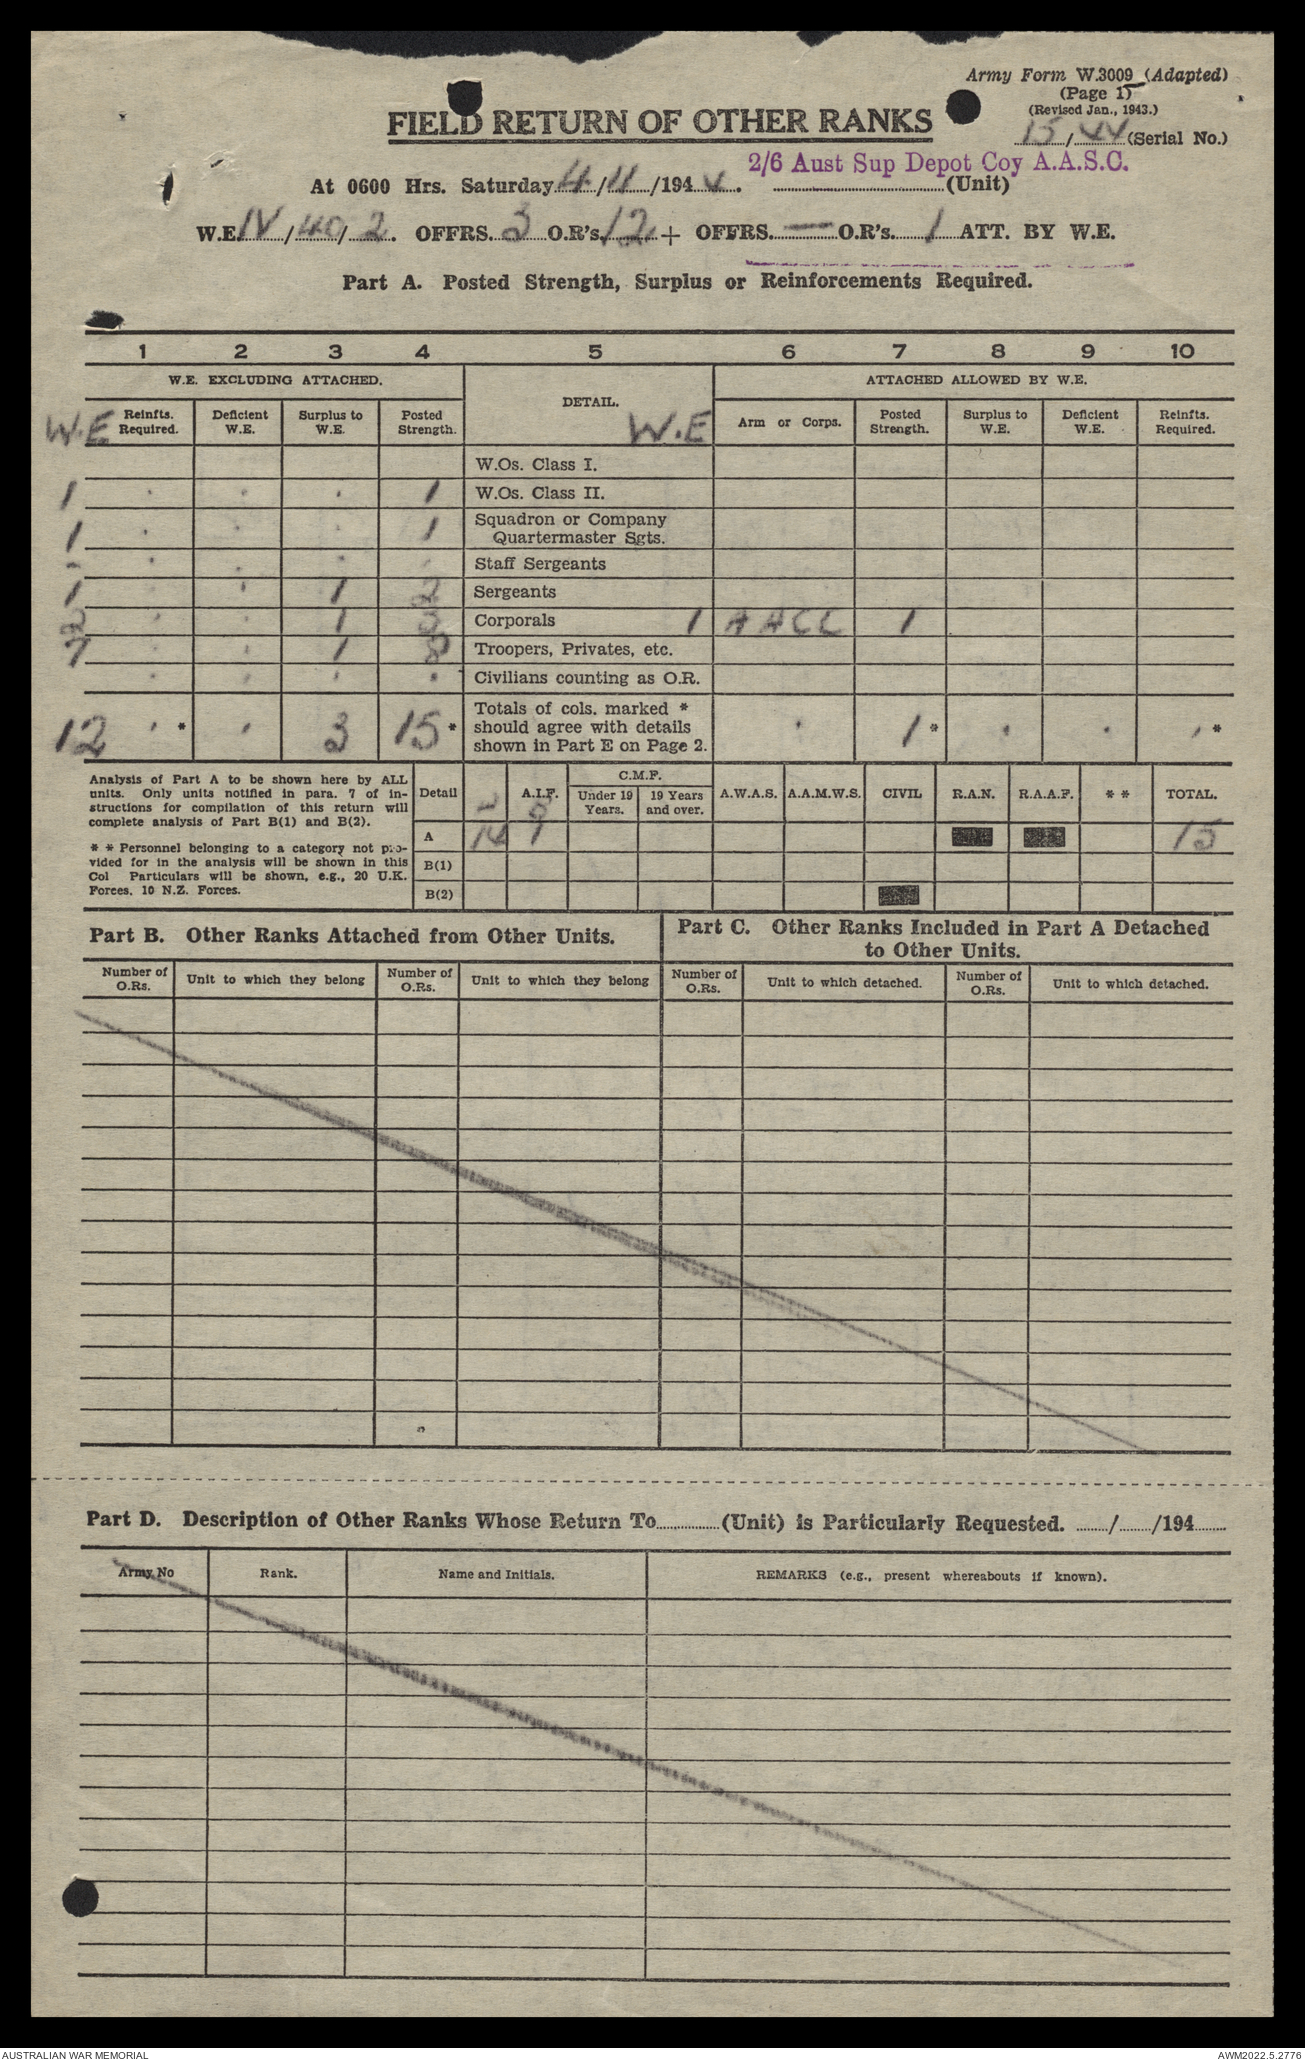 Army Form W.3009 (Adapted)
(Page 1)
(Revised Jan., 1943.)
FIELD RETURN OF OTHER RANKS
15/44 (Serial No.)
2/6 Aust Sup Depot Coy A.A.S.C.
At 0600 Hrs. Saturday 4/11/1944. (Unit)
W.E. IV/40/2. OFFRS. 3 O.R's. 12 + OFFRS. — O.R's. 1 ATT. BY W.E.
Part A. Posted Strength, Surplus or Reinforcements Required.
1 2 3 4 5 6 7 8 9 10
W.E. EXCLUDING ATTACHED. DETAIL. ATTACHED ALLOWED BY W.E.
W.E Reinfts. Required. Deficient W.E. Surplus to W.E. Posted Strength. W.E Arm or Corps. Posted Strength. Surplus to W.E. Deficient W.E. Reinfts. Required.
W.Os. Class I.
1 . . . 1 W.Os. Class II.
1 . . . 1 Squadron or Company
Quartermaster Sgts.
- . . . . Staff Sergeants
1 . . 1 2 Sergeants
2 . . 1 3 Corporals 1 AACC 1
7 . . 1 8 Troopers, Privates, etc.
. . . . Civilians counting as O.R.
12 . * . 3 15 * Totals of cols. marked *
should agree with details
shown in Part E on Page 2. . 1 * . . . *
Analysis of Part A to be shown here by ALL
units. Only units notified in para. 7 of in-
structions for compilation of this return will
complete analysis of Part B(1) and B(2).
* * Personnel belonging to a category not pro-
vided for in the analysis will be shown in this
Col Particulars will be shown, e.g., 20 U.K.
Forces. 10 N.Z. Forces.
C.M.F.
Detail A.I.F. Under 19 Years. 19 Years and over. A.W.A.S. A.A.M.W.S. CIVIL R.A.N. R.A.A.F. * * TOTAL.
A 14 15
B(1)
B(2)
Part B. Other Ranks Attached from Other Units.
Part C. Other Ranks Included in Part A Detached
to Other Units.
Number of O.Rs. Unit to which they belong Number of O.Rs. Unit to which they belong Number of O.Rs. Unit to which detached. Number of O.Rs. Unit to which detached.
Part D. Description of Other Ranks Whose Return To............(Unit) is Particularly Requested. ......./......./194.......
Army No Rank. Name and Initials. REMARKS (e.g., present whereabouts if known).
AUSTRALIAN WAR MEMORIAL AWM2022.5.2776